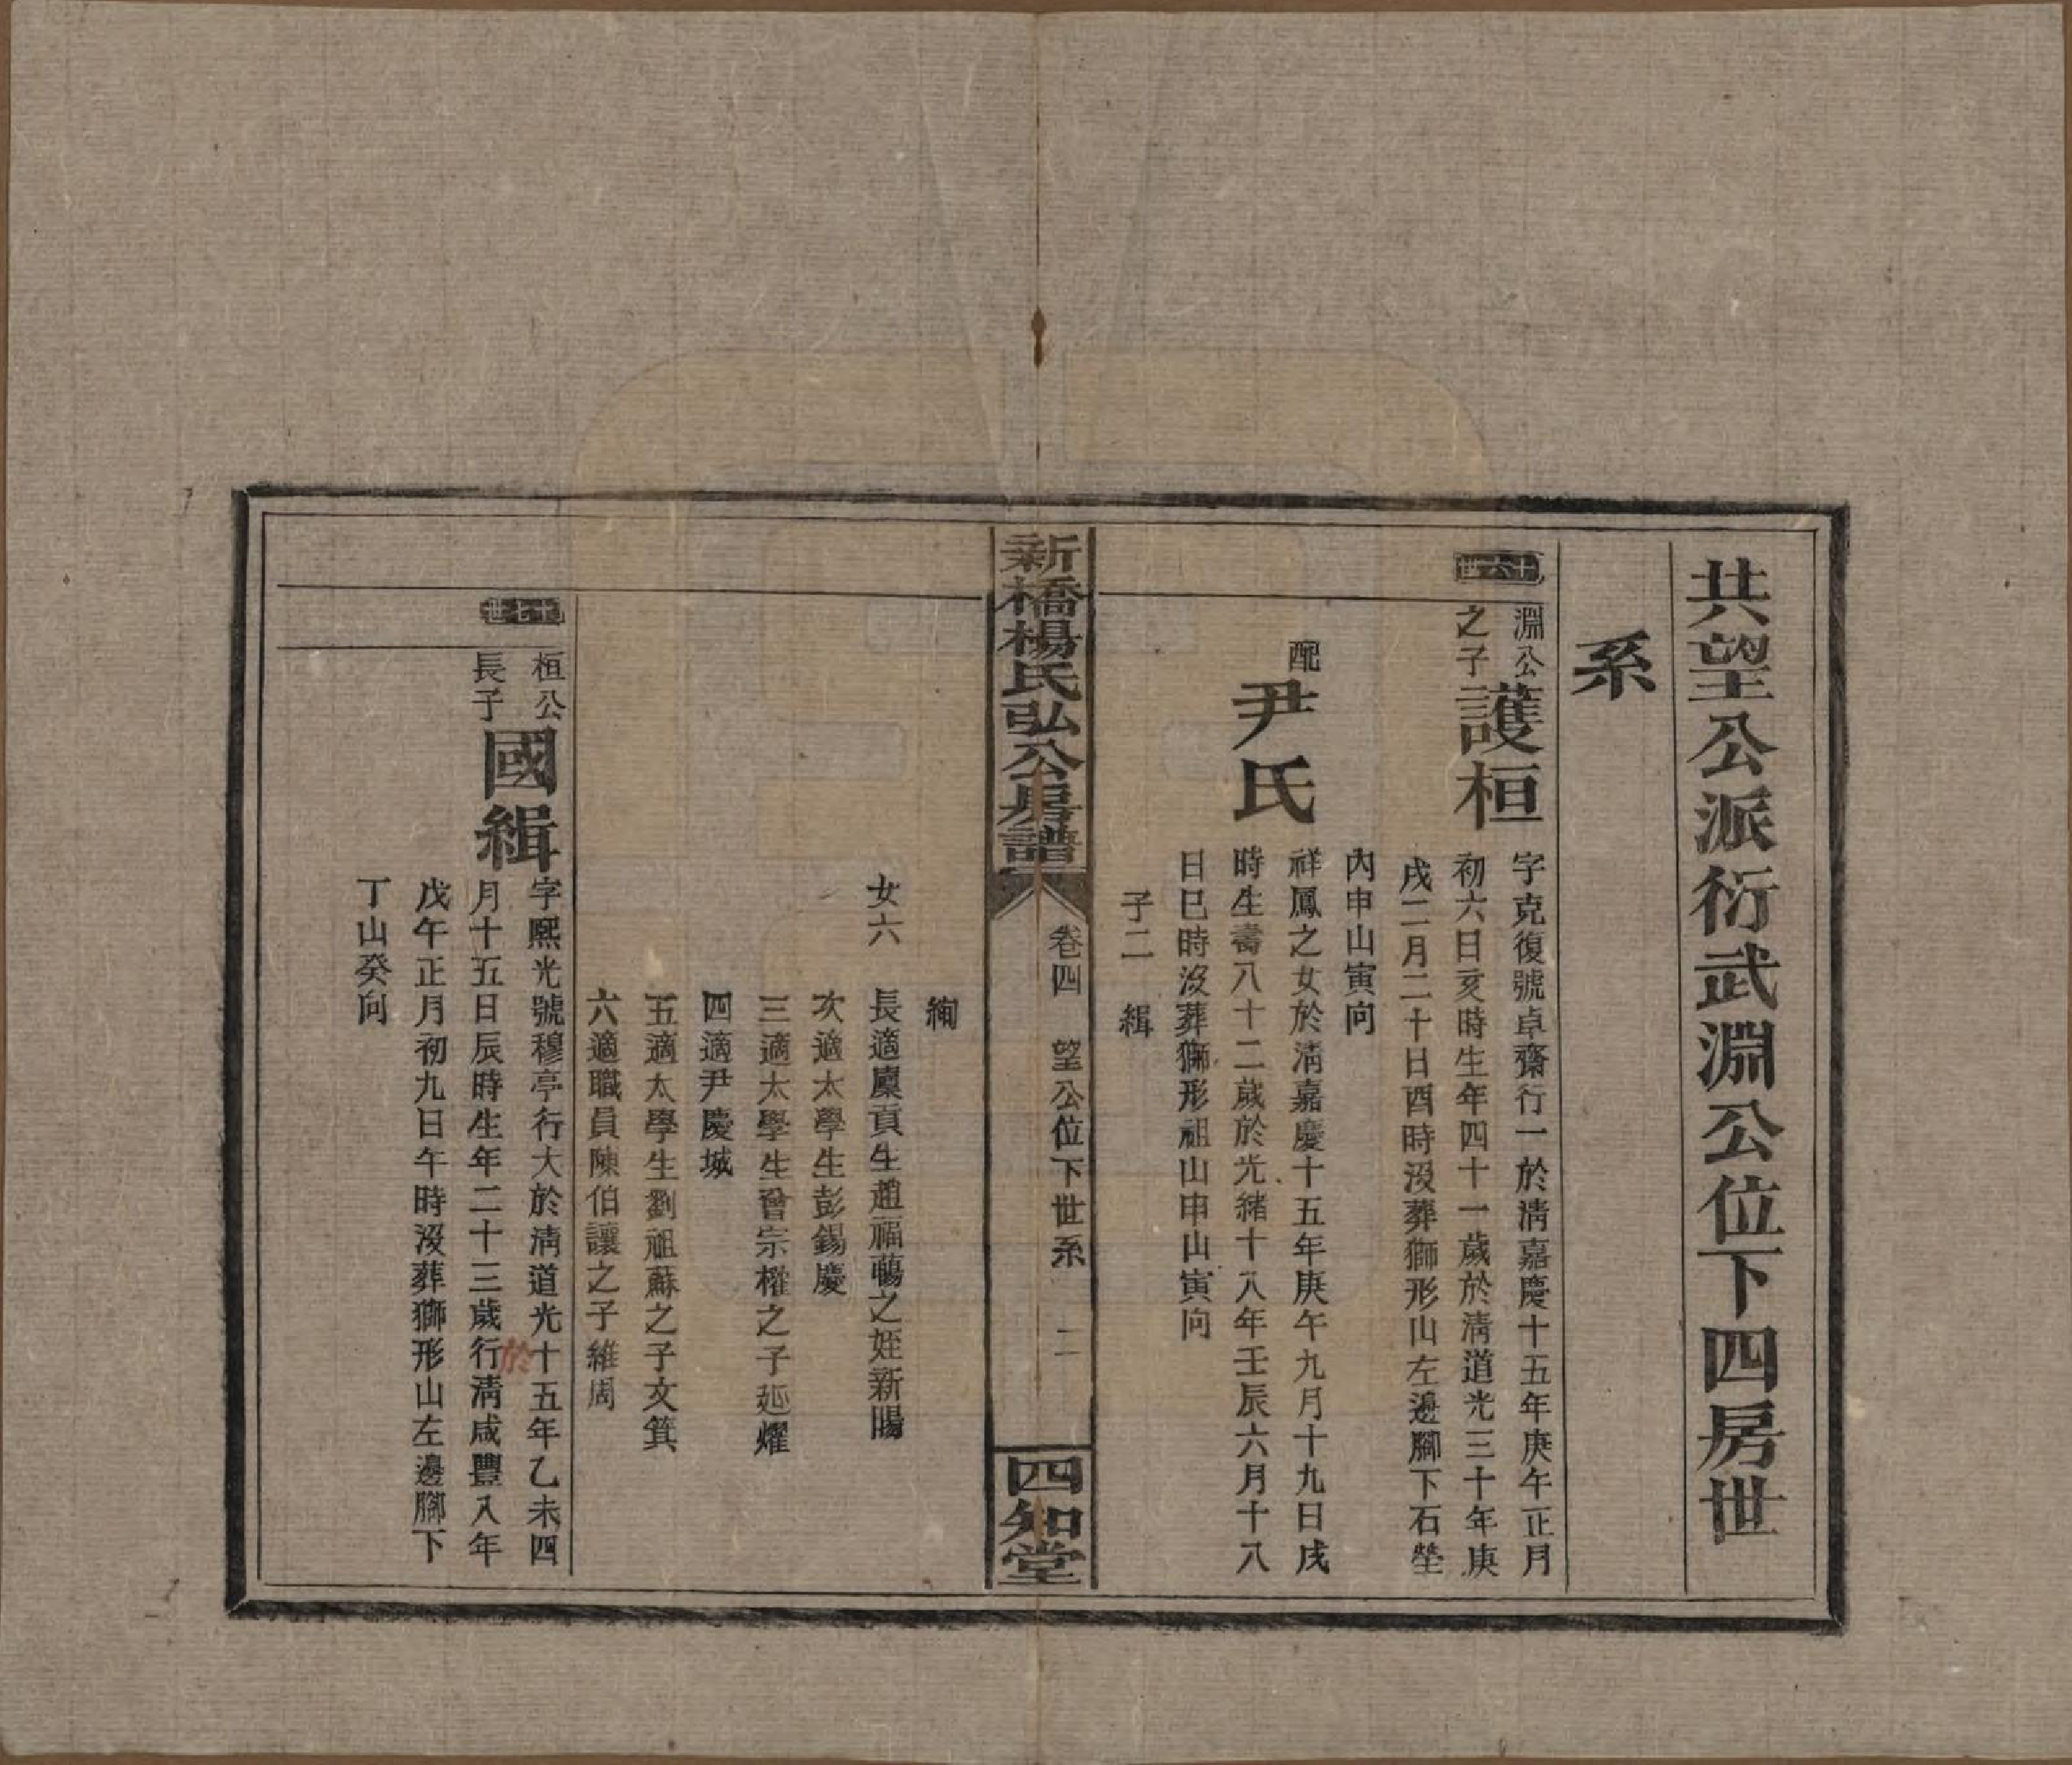 共望公派衍武淵公位下四房世
系
十六世
淵公
之子
護桓
字克復號卓齋行一於淸嘉慶十五年庚午正月
初六日亥時生年四十一歲於淸道光三十年庚
戌二月二十日酉時沒葬獅形山左邊腳下石塋
內申山寅向
配
尹氏
祥鳳之女於淸嘉慶十五年庚午九月十九日戌
時生壽八十二歲於光緒十八年壬辰六月十八
日巳時沒葬獅形祖山申山寅向
子二 緝
新橋楊氏弘公房譜
卷四 望公位下世系 二
四知堂
絢
女六 長適廩貢生趙福鬺之姪新暘
次適太學生彭錫慶
三適太學生曾宗權之子廵燿
四適尹慶城
五適太學生劉祖蘇之子文箕
六適職員陳伯讓之子維周
十七世
桓公
長子
國緝
字熙光號穆亭行大於淸道光十五年乙未四
月十五日辰時生年二十三歲行淸咸豐八年
於
戊午正月初九日午時沒葬獅形山左邊腳下
丁山癸向